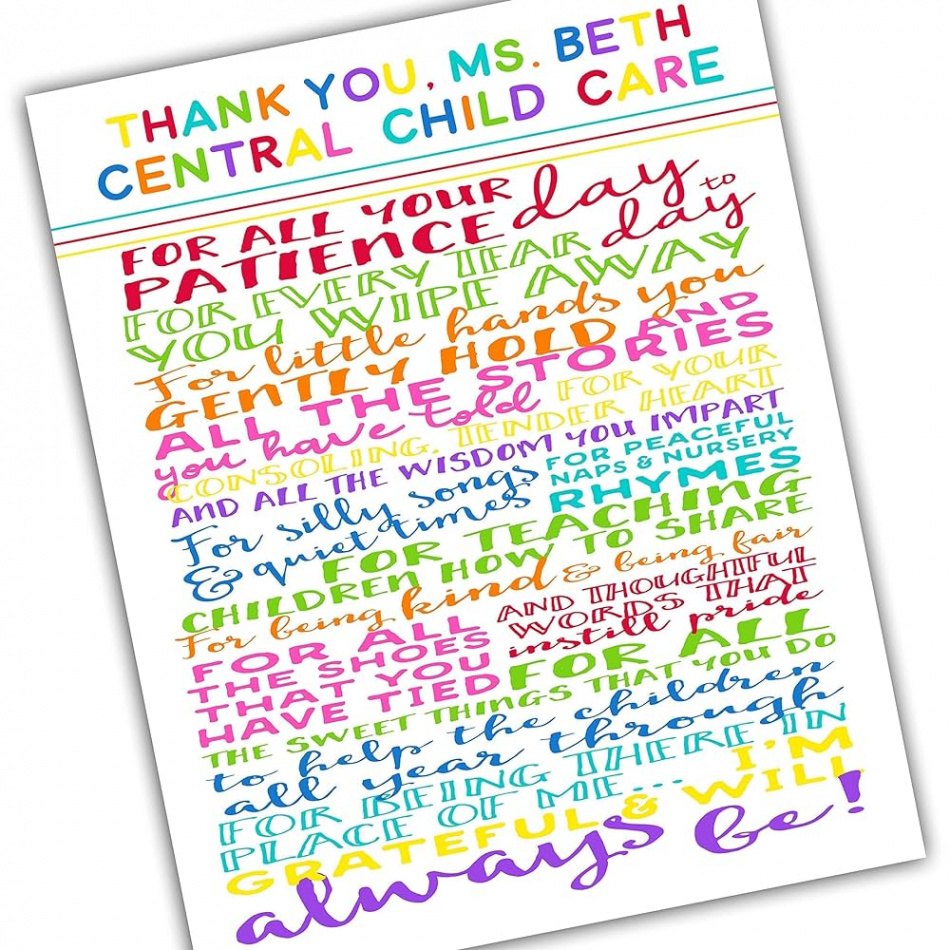 THANK YOU, MS. BETH
CENTRAL CHILD CARE
FOR ALL YOUR
PATIENCE day to day
FOR EVERY TEAR
YOU WIPE AWAY
For little hands you
GENTLY HOLD AND
ALL THE STORIES
you have told FOR YOUR
CONSOLING, TENDER HEART
AND ALL THE WISDOM YOU IMPART
For silly songs
& quiet times
FOR PEACEFUL
NAPS & NURSERY
RHYMES
FOR TEACHING
CHILDREN HOW TO SHARE
For being kind & being fair
FOR ALL
THE SHOES
THAT YOU
HAVE TIED
AND THOUGHTFUL
WORDS THAT
instill pride
FOR ALL
THE SWEET THINGS THAT YOU DO
to help the children
all year through
FOR BEING THERE IN
PLACE OF ME... I'M
GRATEFUL & WILL
always be!